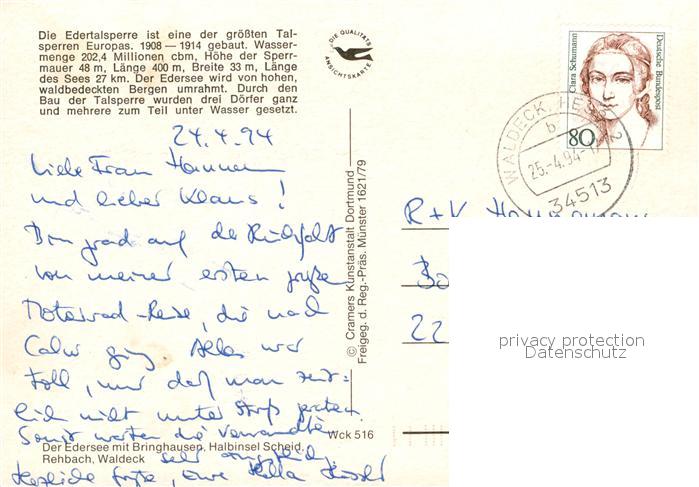 Die Edertalsperre ist eine der größten Tal-
sperren Europas. 1908 — 1914 gebaut. Wasser-
menge 202,4 Millionen cbm, Höhe der Sperr-
mauer 48 m, Länge 400 m, Breite 33 m, Länge
des Sees 27 km. Der Edersee wird von hohen,
waldbedeckten Bergen umrahmt. Durch den
Bau der Talsperre wurden drei Dörfer ganz
und mehrere zum Teil unter Wasser gesetzt.
DIE QUALITÄTS
ANSICHTSKARTE
Clara Schumann
Deutsche Bundespost
80
WALDECK, HESS
b
25.-4.94-1
34513
24.4.94
Liebe Frau
und lieber Klaus!
Bin grad auf der Rückfahrt
von meiner ersten große
Motorrad-Reise, die nach
Calw ging. Alles war
toll, nur daß man
nicht unter
Sonst waren die Verwandten
sehr
Herzliche Grüße, Eure
R + K
22
© Cramers Kunstanstalt Dortmund
Freigeg. d. Reg.-Präs. Münster 1621/79
Wck 516
Der Edersee mit Bringhausen, Halbinsel Scheid,
Rehbach, Waldeck
privacy protection
Datenschutz